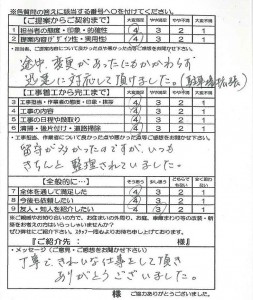 ※各質問の答えに該当する番号へ○を付けてください。
【ご提案からご契約まで】
大変満足 やや満足 やや不満 大変不満
1 担当者の態度・印象・的確性 4 3 2 1
2 提案内容(デザイン性・実用性) 4 3 2 1
途中、変更があったにもかかわらず
迅速に対応して頂けました。
【工事着工から完了まで】
大変満足 やや満足 やや不満 大変不満
3 工事担当・作業者の態度・印象・挨拶 4 3 2 1
4 工事の内容 4 3 2 1
5 工事の日程や段取り 4 3 2 1
6 清掃・後片付け・道路掃除 4 3 2 1
留守が多かったのですが、いつも
きちんと監理されていました。
【全般的に…】
7 全体を通して満足した 4 3 2 1
8 今後も依頼したい 4 3 2 1
9 友人・知人を紹介したい 4 3 2 1
『ご紹介先: 様』
・メッセージ(ご意見・ご感想をお聞かせ下さい)
丁寧で、きれいな仕事をして頂き
ありがとうございました。
様 ご協力ありがとうございました。